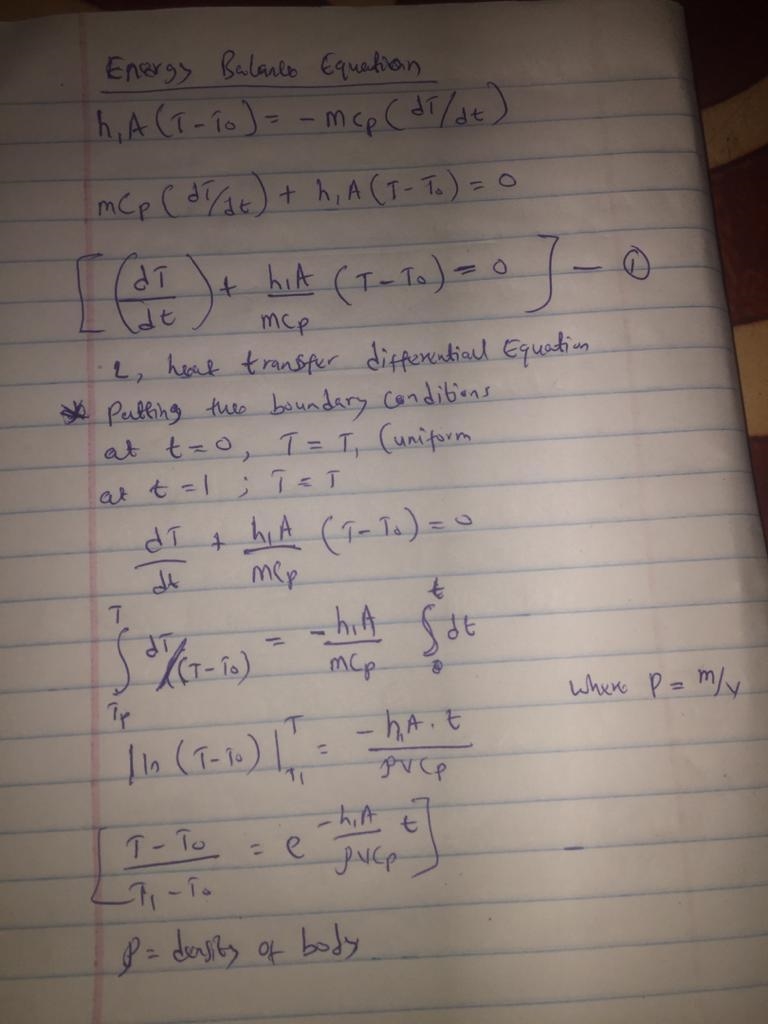 Energy Balance Equation
h₁A(T-T₀) = -mCp(dT/dt)
mCp(dT/dt) + h₁A(T-T₀) = 0
[(dT/dt) + h₁A/mCp (T-T₀) = 0] - ①
2, heat transfer differential Equation
* Putting the boundary conditions
at t=0, T = T₁ (uniform
at t=1 ; T = T
dT/dt + h₁A/mCp (T-T₀) = 0
∫ dT/(T-T₀) = -h₁A/mCp ∫₀ᵗ dt
where ρ = m/v
|ln(T-T₀)|ᵀ_T₁ = -h₁A.t/ρVCp
[T-T₀/T₁-T₀ = e^(-h₁A/ρVCp t)]
-
ρ = density of body